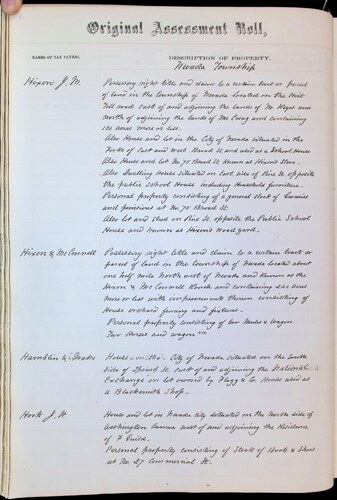 Original Assessment Roll,
NAMES OF TAX PAYERS.
DESCRIPTION OF PROPERTY.
Nevada Township
Hixon J. M.
Possessory right title and claim to a certain tract or parcel
of land in the township of Nevada located on the
Toll road East of and adjoining the lands of M Keyes and
north of adjoining the lands of Mc and containing
acres more or less.
Also House and lot in the City of Nevada situated in the
Forks of East and West Broad St and used as a School House
Also House and lot No 75 Broad St known as Hixons Store.
Also Dwelling House situated on East side of Pine St opposite
the public School House including Household furniture.
Personal property consisting of a general stock of Groceries
and provisions at No 75 Broad St.
Also lot and shed on Pine St opposite the Public School
House and known as Hixons Woodyard.
Hixon & McConnell
Possessory right title and claim to a certain tract or
parcel of land in the township of Nevada located about
one half mile North west of Nevada and known as the
Hixon & McConnell Ranch and containing acres
more or less with improvements thereon consisting of
House orchard fencing and fixtures.
Personal property consisting of two Mules & Wagon
Two Horses and wagon
Hamblin &
House City of Nevada situated on the South
side of Spring St East of and adjoining the National
Exchange on lot owned by Flagg & Co House used as
a Blacksmith Shop.
Hook J. H
House and lot in Nevada City situated on the North side of
Washington Avenue west of and adjoining the Residence
of Guild.
Personal property consisting of Stock of Boots & Shoes
at No. 27 Commercial St.